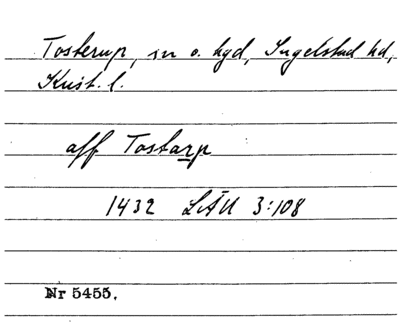 Tosterup, sn o. hgd, Ingelstad hd,
Krist. l.
aff Tostarp
1432 LÄU 3:108
Nr 5455.